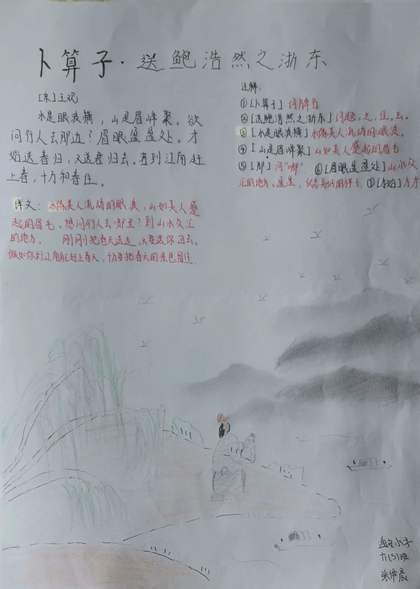 卜算子·送鲍浩然之浙东
[宋]王观
水是眼波横，山是眉峰聚。欲
问行人去那边？眉眼盈盈处。才
始送春归，又送君归去。若到江南赶
上春，千万和春住。
译文：水像美人流动的眼波，山如美人蹙
起的眉毛，想问行人去哪里？到山水交汇
的地方。刚刚把春天送走，又要送你归去。
假如你到江南能赶上春天，千万要把春天的景色留住
注解：
①[卜算子]词牌名
②[送鲍浩然之浙东]词题，之，往，去。
③[水是眼波横]水像美人流动的眼波。
④[山是眉峰聚]山如美人蹙起的眉毛
⑤[那]同“哪” ⑥[眉眼盈盈处]山水交
汇的地方，盈盈，
六(5)班